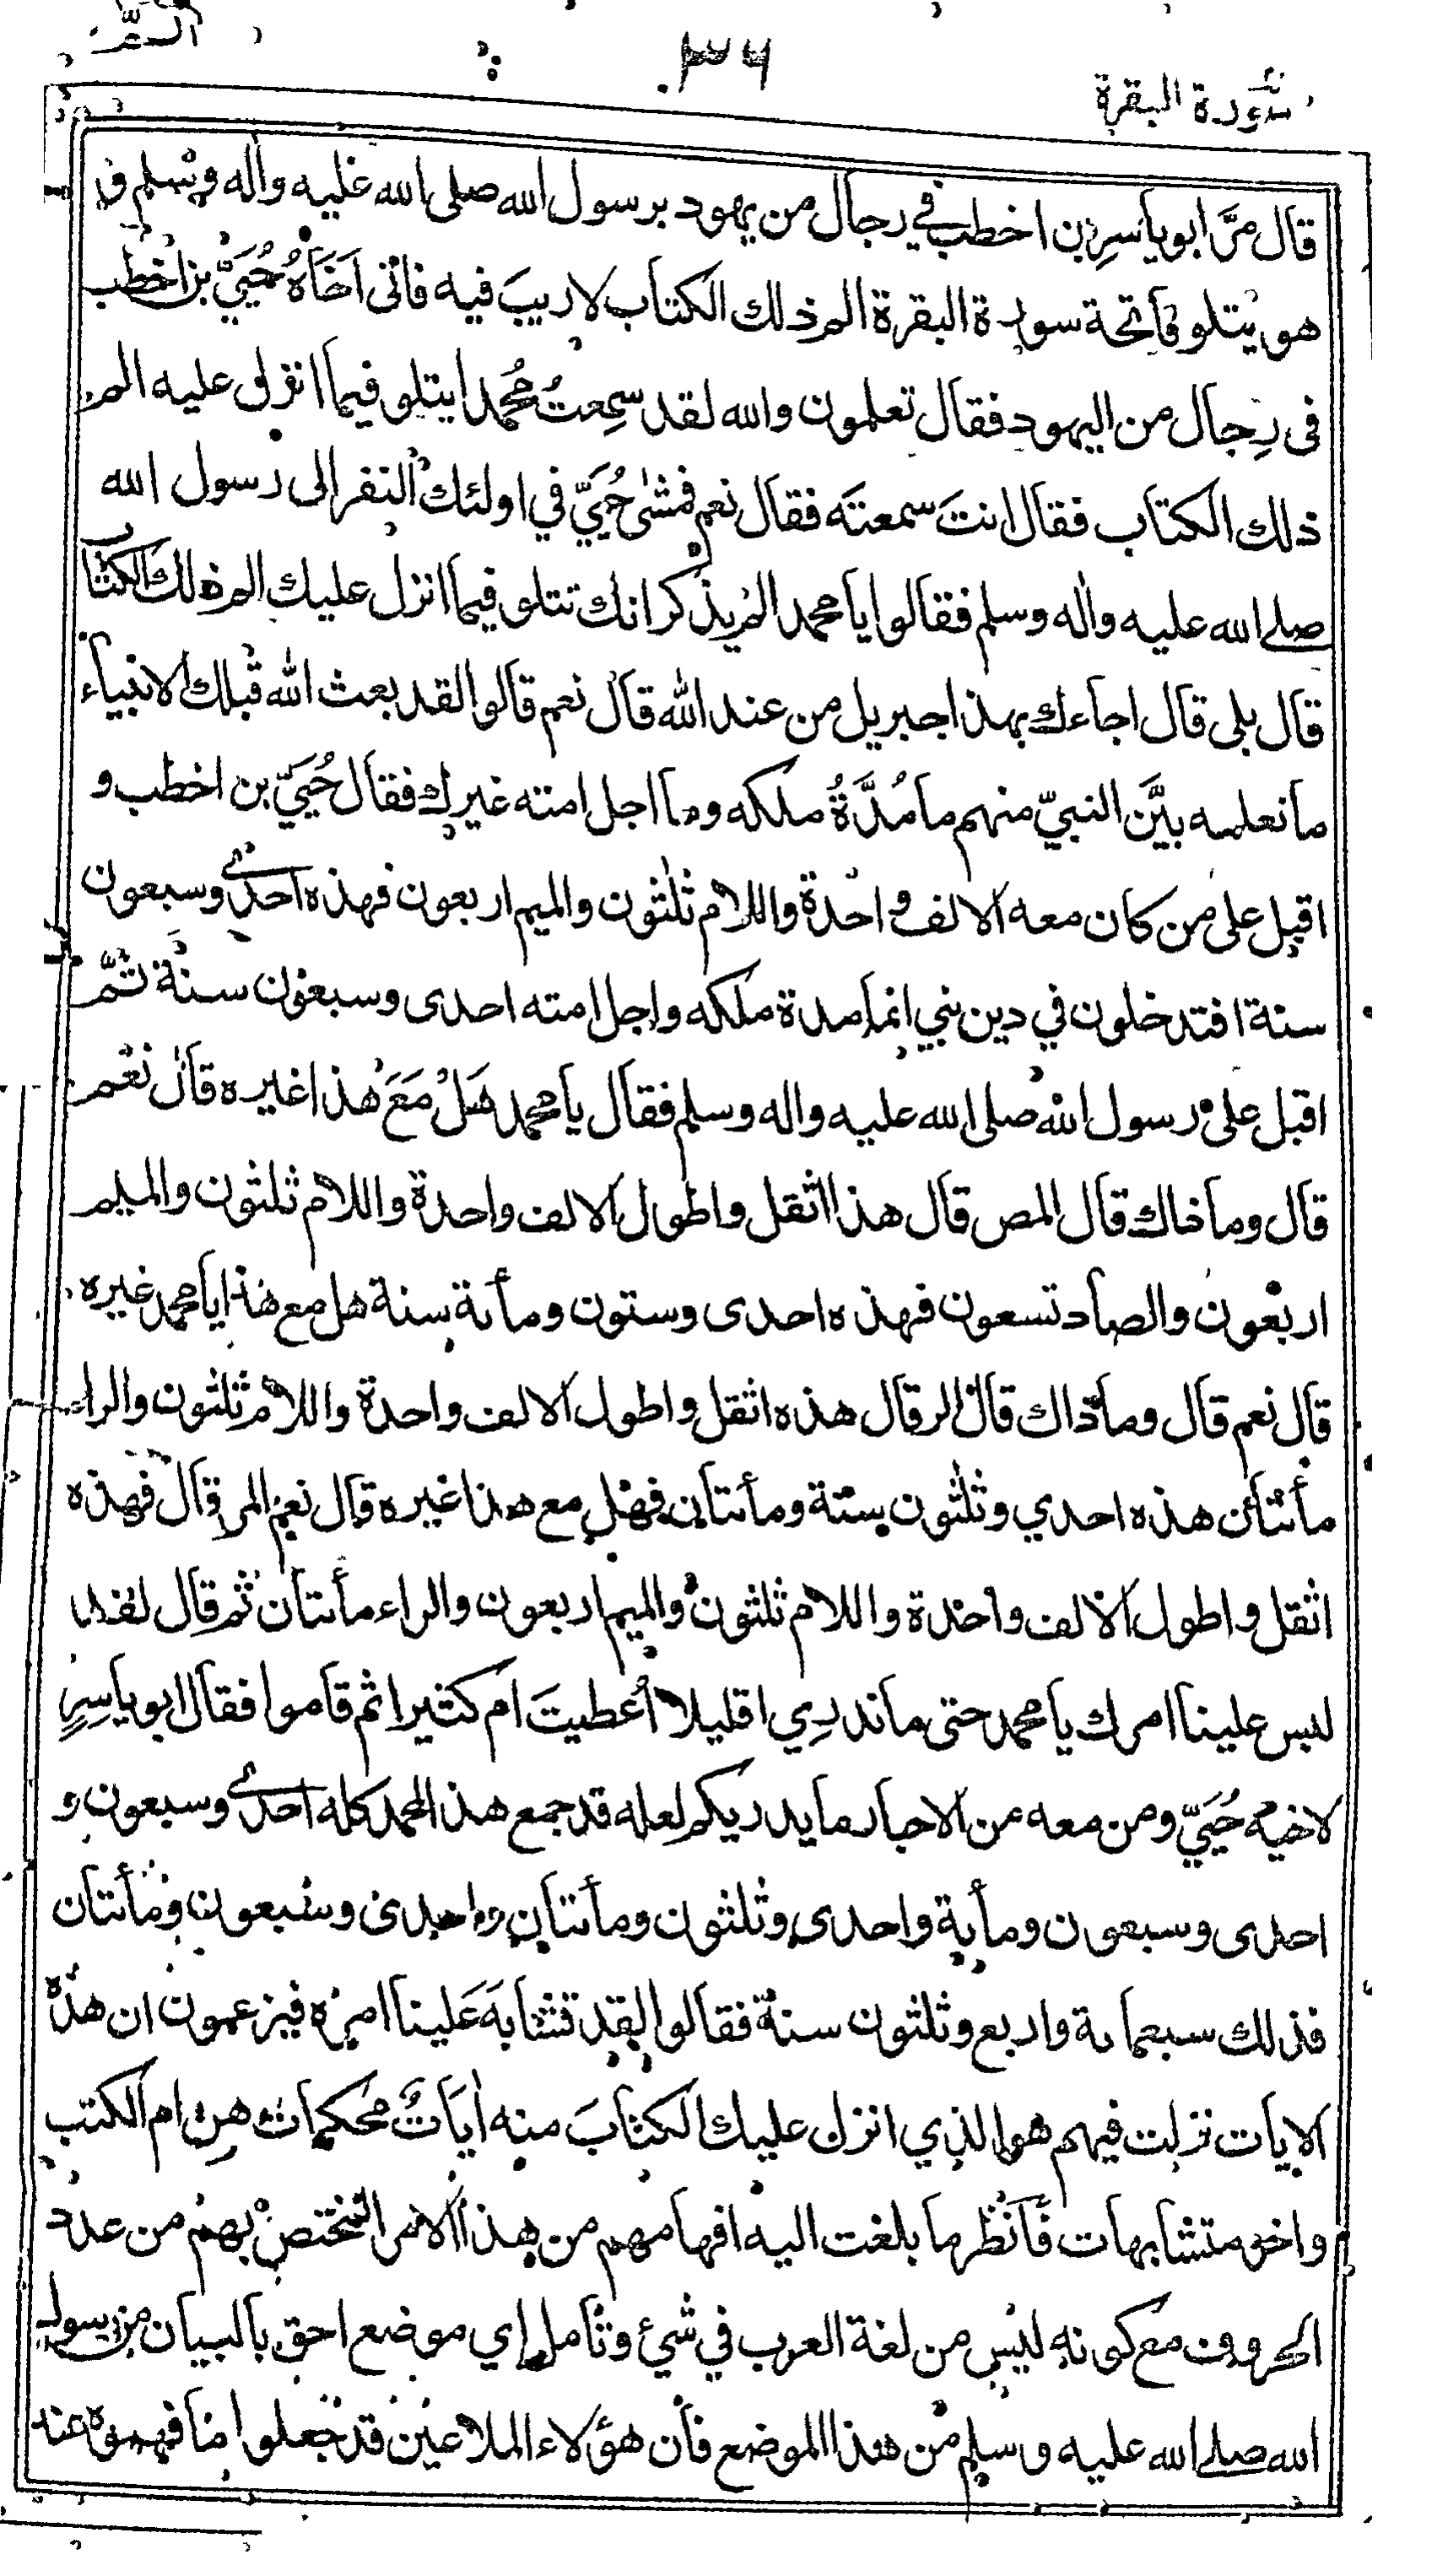 الــمّ
٣٦
سورة البقرة
قال مرَّ ابو ياسرِ بن اخطب في رجال من يهود برسول الله صلى الله عليه واٰله وسلم و
هو يتلو فاتحة سورة البقرة الم ذلك الكتاب لا ريبَ فيه فاتى اخَاهُ حُيَيَّ بن اخطب
فى رِجال من اليهود فقال تعلمون والله لقد سمِعتُ محُمدا يتلو فيما انزل عليه الم
ذلك الكتاب فقال انتَ سمعتَه فقال نعم فمشىٰ حُيَيّ في اولئك النفر الى رسول الله
صلے الله عليه واٰله وسلم فقالوا يا محمد الم يذكر انك تتلو فيما انزل عليك الم ذلك الكتاب
قال بلى قال اجاءك بهذا جبريل من عند الله قال نعم قالوا لقد بعث الله قبلك الانبياء
ما نعلمه بيَّن النبيّ منهم ما مُدَّةُ ملكه وما اجل امته غيرك فقال حُيَيّ بن اخطب و
اقبل على من كان معه الالف واحدة واللام ثلٰثون والميم اربعون فهذه احدى وسبعون
سنة افتدخلون في دين نبي انما مدة ملكه واجل امته احدى وسبعون سنة ثمّ
اقبل على رسول الله صلى الله عليه واله وسلم فقال يا محمد هَلْ مَعَ هذا غيره قال نعم
قال وما ذاك قال المص قال هذا اثقل واطول الالف واحدة واللام ثلثون والميم
اربعون والصاد تسعون فهذه احدى وستون ومأئة سنة هل مع هذا يا محمد غيره
قال نعم قال وما ذاك قال الر قال هذه اثقل واطول الالف واحدة واللام ثلثون والراء
مأئتان هذه احدي وثلٰثون سنة ومأئتان فهل مع هذا غيره قال نعم المر قال فهذه
اثقل واطول الالف واحدة واللام ثلثون والميم اربعون والراء مأئتان ثم قال لقد
لبس علينا امرك يا محمد حتى ما ندرِي اقليلا اُعطيتَ ام كثيرا ثم قاموا فقال ابو ياسِرِ
لاخيه حُيَيّ ومن معه من الاحبار ما يدريكم لعله قد جمع هذا لمحمد كله احدى وسبعون و
احدى وسبعون ومأية واحدى وثلثون ومأئتان واحدى وسبعون ومأئتان
فذلك سبعمائة واربع وثلثون سنة فقالوا لقد تشابهَ عَلينا امره فيزعمون ان هذه
الايات نزلت فيهم هو الذي انزل عليك الكتابَ منه اٰيَاتٌ محكمات هن ام الكتب
واخر متشابهات فأنظر ما بلغت اليه افهامهم من هذا الامر المختص بهم من عدد
الحروف مع كونه ليس من لغة العرب في شئ وتأمل اي موضع احق بالبيان من رسول
الله صلے الله عليه وسلم من هذا الموضع فأن هؤلاء الملاعين قد جعلوا ما فهموه عند